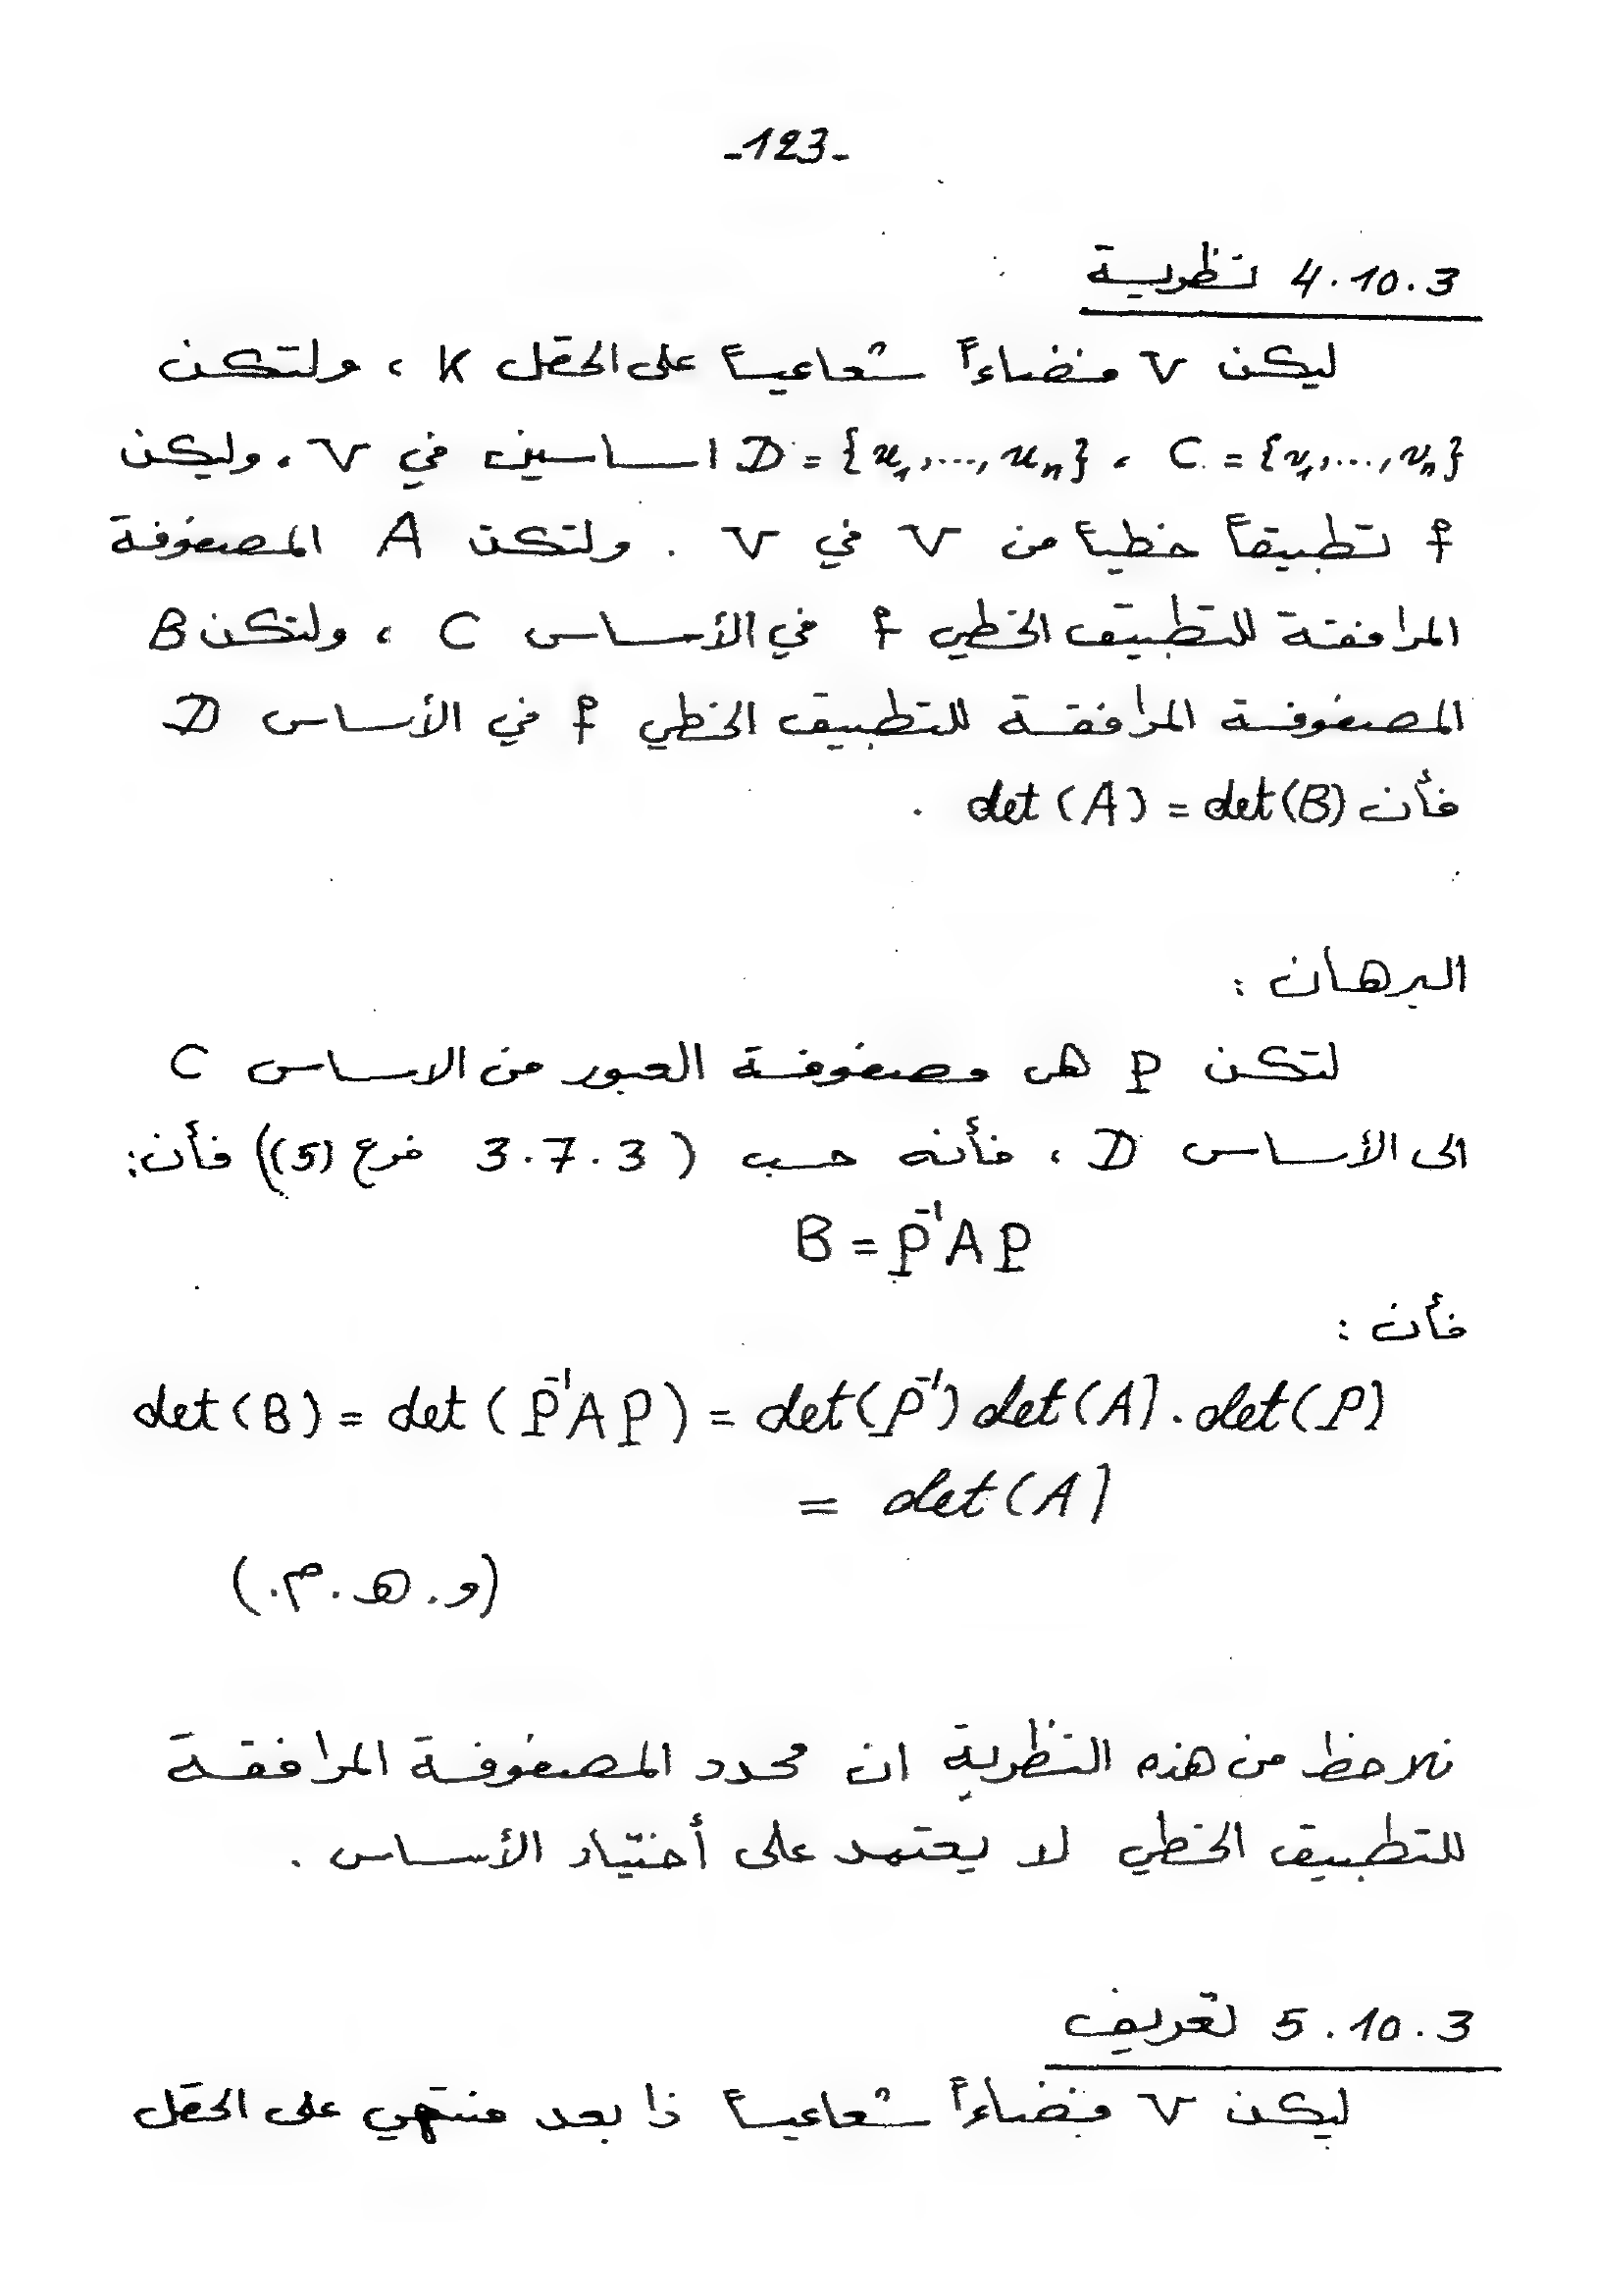 -123-
4.10.3 نظرية
ليكن V فضاءاً شعاعياً على الحقل K ، ولتكن
C = {v₁,...,vₙ} ، D = {u₁,...,uₙ} اساسين في V ، وليكن
f تطبيقاً خطياً من V في V . ولتكن A المصفوفة
المرافقة للتطبيق الخطي f في الأساس C ، ولتكن B
المصفوفة المرافقة للتطبيق الخطي f في الأساس D
فأن det(A) = det(B) .
البرهان :
لتكن P هي مصفوفة العبور من الاساس C
الى الأساس D ، فأنه حسب ( 3.7.3 فرع (5)) فأن:
B = P⁻¹AP
فأن :
det(B) = det(P⁻¹AP) = det(P⁻¹) det(A).det(P)
= det(A)
(و.هـ.م.)
نلاحظ من هذه النظرية ان محدد المصفوفة المرافقة
للتطبيق الخطي لا يعتمد على أختيار الأساس .
5.10.3 تعريف
ليكن V فضاءاً شعاعياً ذا بعد منتهي على الحقل